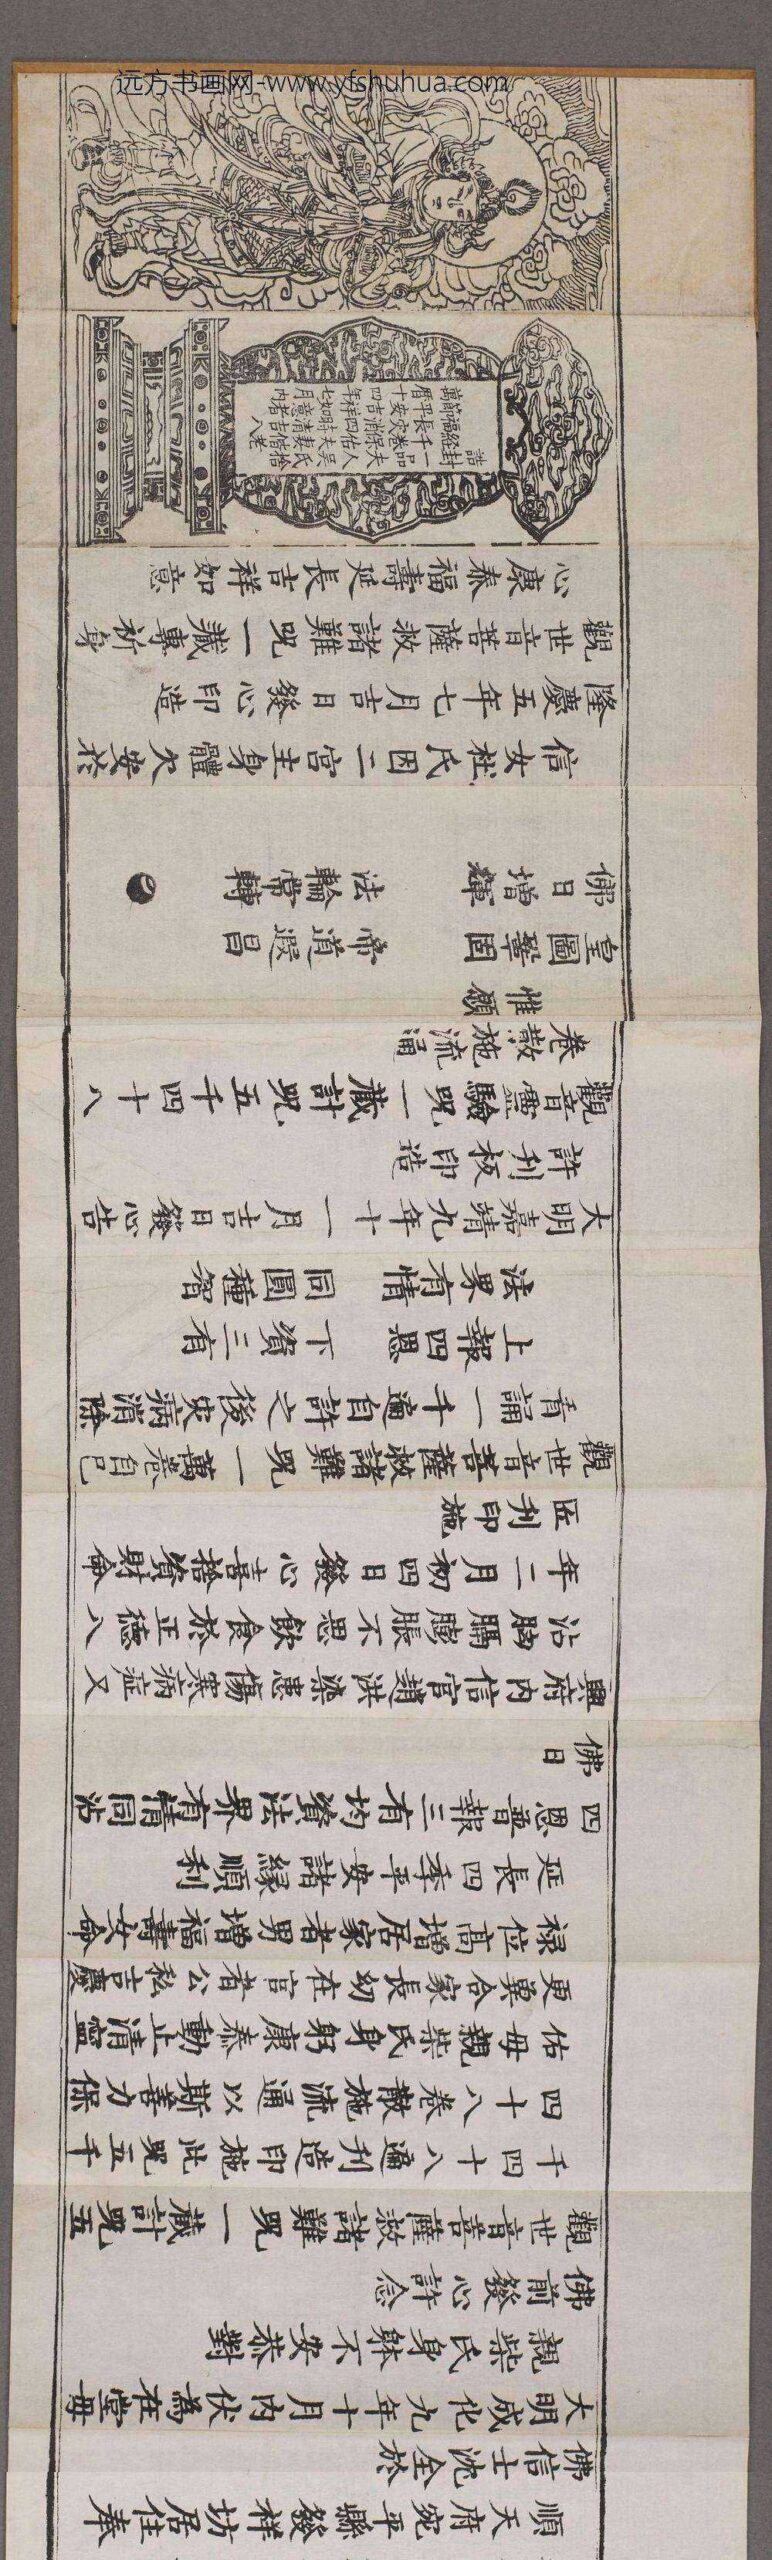 远方书画网-www.yfshuhua.com
順天府宛平縣發祥坊居住奉
佛信士沈全於
大明成化九年十月內伏為在堂母
親柴氏身躰不安恭對
佛前發心許念
觀世音菩薩救諸難呪一藏計呪五
千四十八遍刋造印施此呪五千
四十八卷散施流通以斯善力保
佑母親柴氏身躬康泰動止清寧
更冀合家長幼在官者公私吉慶
祿位高增居家者男增福壽女命
延長四季平安諸緣順利
四恩普報三有均資法界有情同沾
佛日
興府內信官趙洪染患傷寒病症又
沾胸膈膨脹不思飲食於正德八
年二月初四日發心喜捨資財命
匠刋印施
觀世音菩薩救諸難呪一萬卷自己
看誦一千遍自許之後灾病消除
上報四恩 下資三有
法界有情 同圓種智
大明嘉靖九年十一月吉日發心告
許刋板印造
觀音靈驗呪一藏計呪五千四十八
卷散施流通
惟願
皇圖鞏固 帝道遐昌
佛日增輝 法輪常轉
信女杜氏因二宮主身體欠安於
隆慶五年七月吉日發心印造
觀世音菩薩救諸難呪一藏專祈身
心康泰福壽延長吉祥如意
誥封一品夫人吳氏捨
萬曆十四年七月內